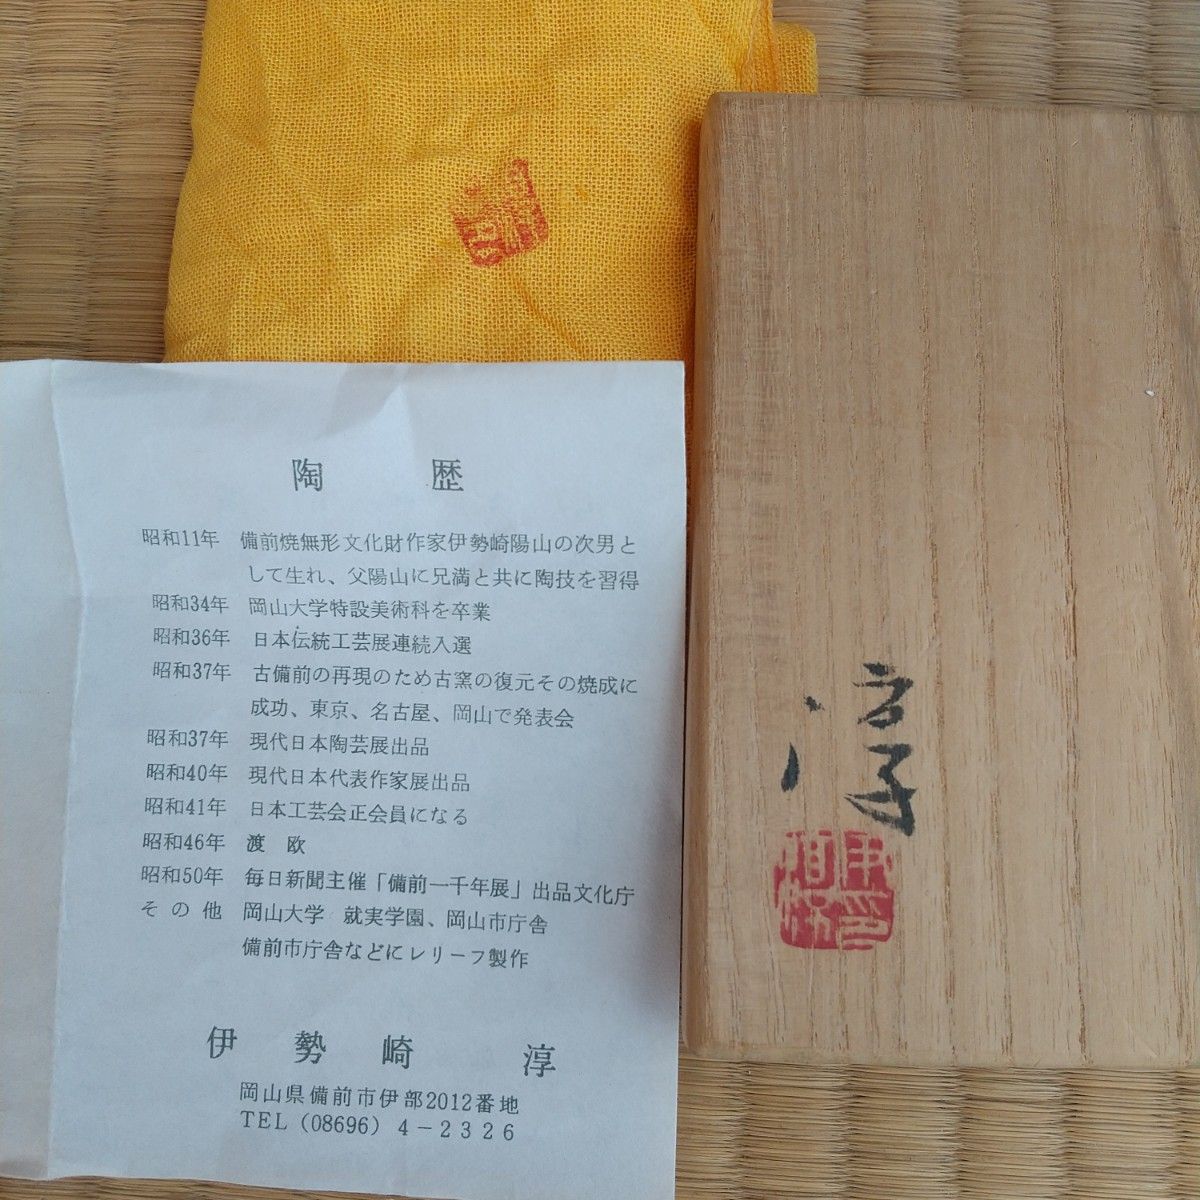 陶歴
昭和11年 備前焼無形文化財作家伊勢崎陽山の次男と
して生れ、父陽山に兄満と共に陶技を習得
昭和34年 岡山大学特設美術科を卒業
昭和36年 日本伝統工芸展連続入選
昭和37年 古備前の再現のため古窯の復元その焼成に
成功、東京、名古屋、岡山で発表会
昭和37年 現代日本陶芸展出品
昭和40年 現代日本代表作家展出品
昭和41年 日本工芸会正会員になる
昭和46年 渡欧
昭和50年 毎日新聞主催「備前一千年展」出品文化庁
その他 岡山大学 就実学園、岡山市庁舎
備前市庁舎などにレリーフ製作
伊勢崎 淳
岡山県備前市伊部2012番地
TEL (08696) 4-2326
淳